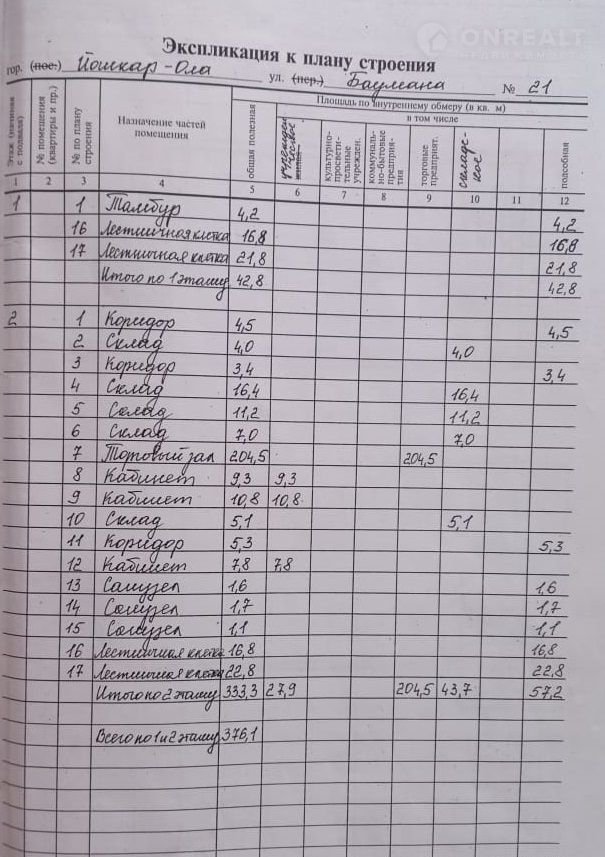 ONREALT
Экспликация к плану строения
гор. (пос.) Йошкар-Ола ул. (пер.) Баумана № 21
Этаж (начиная с подвала) № помещения (квартиры и пр.) № по плану строения Назначение частей помещения Площадь по внутреннему обмеру (в кв. м)
общая полезная в том числе
культурно-просветительные учрежден. коммунально-бытовые предприятия торговые предприят. складское подсобная
1 2 3 4 5 6 7 8 9 10 11 12
1 1 Тамбур 4,2 4,2
16 Лестничная клетка 16,8 16,8
17 Лестничная клетка 21,8 21,8
Итого по 1 этажу 42,8 42,8
2 1 Коридор 4,5 4,5
2 Склад 4,0 4,0
3 Коридор 3,4 3,4
4 Склад 16,4 16,4
5 Склад 11,2 11,2
6 Склад 7,0 7,0
7 Торговый зал 204,5 204,5
8 Кабинет 9,3 9,3
9 Кабинет 10,8 10,8
10 Склад 5,1 5,1
11 Коридор 5,3 5,3
12 Кабинет 7,8 7,8
13 Санузел 1,6 1,6
14 Санузел 1,7 1,7
15 Санузел 1,1 1,1
16 Лестничная клетка 16,8 16,8
17 Лестничная клетка 22,8 22,8
Итого по 2 этажу 333,3 27,9 204,5 43,7 57,2
Всего по 1 и 2 этажу 376,1